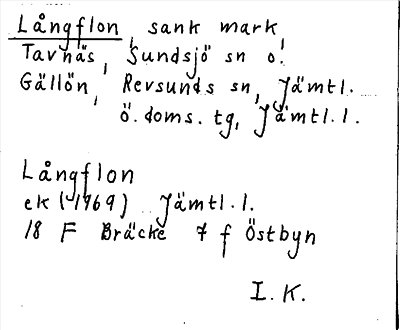 Långflon, sank mark,
Tavnäs, Sundsjö sn o.
Gällön, Revsunds sn, Jämtl.
ö. doms. tg, Jämtl. l.
Långflon
ek (1969) Jämtl. l.
18 F Bräcke 7 f Östbyn
I. K.